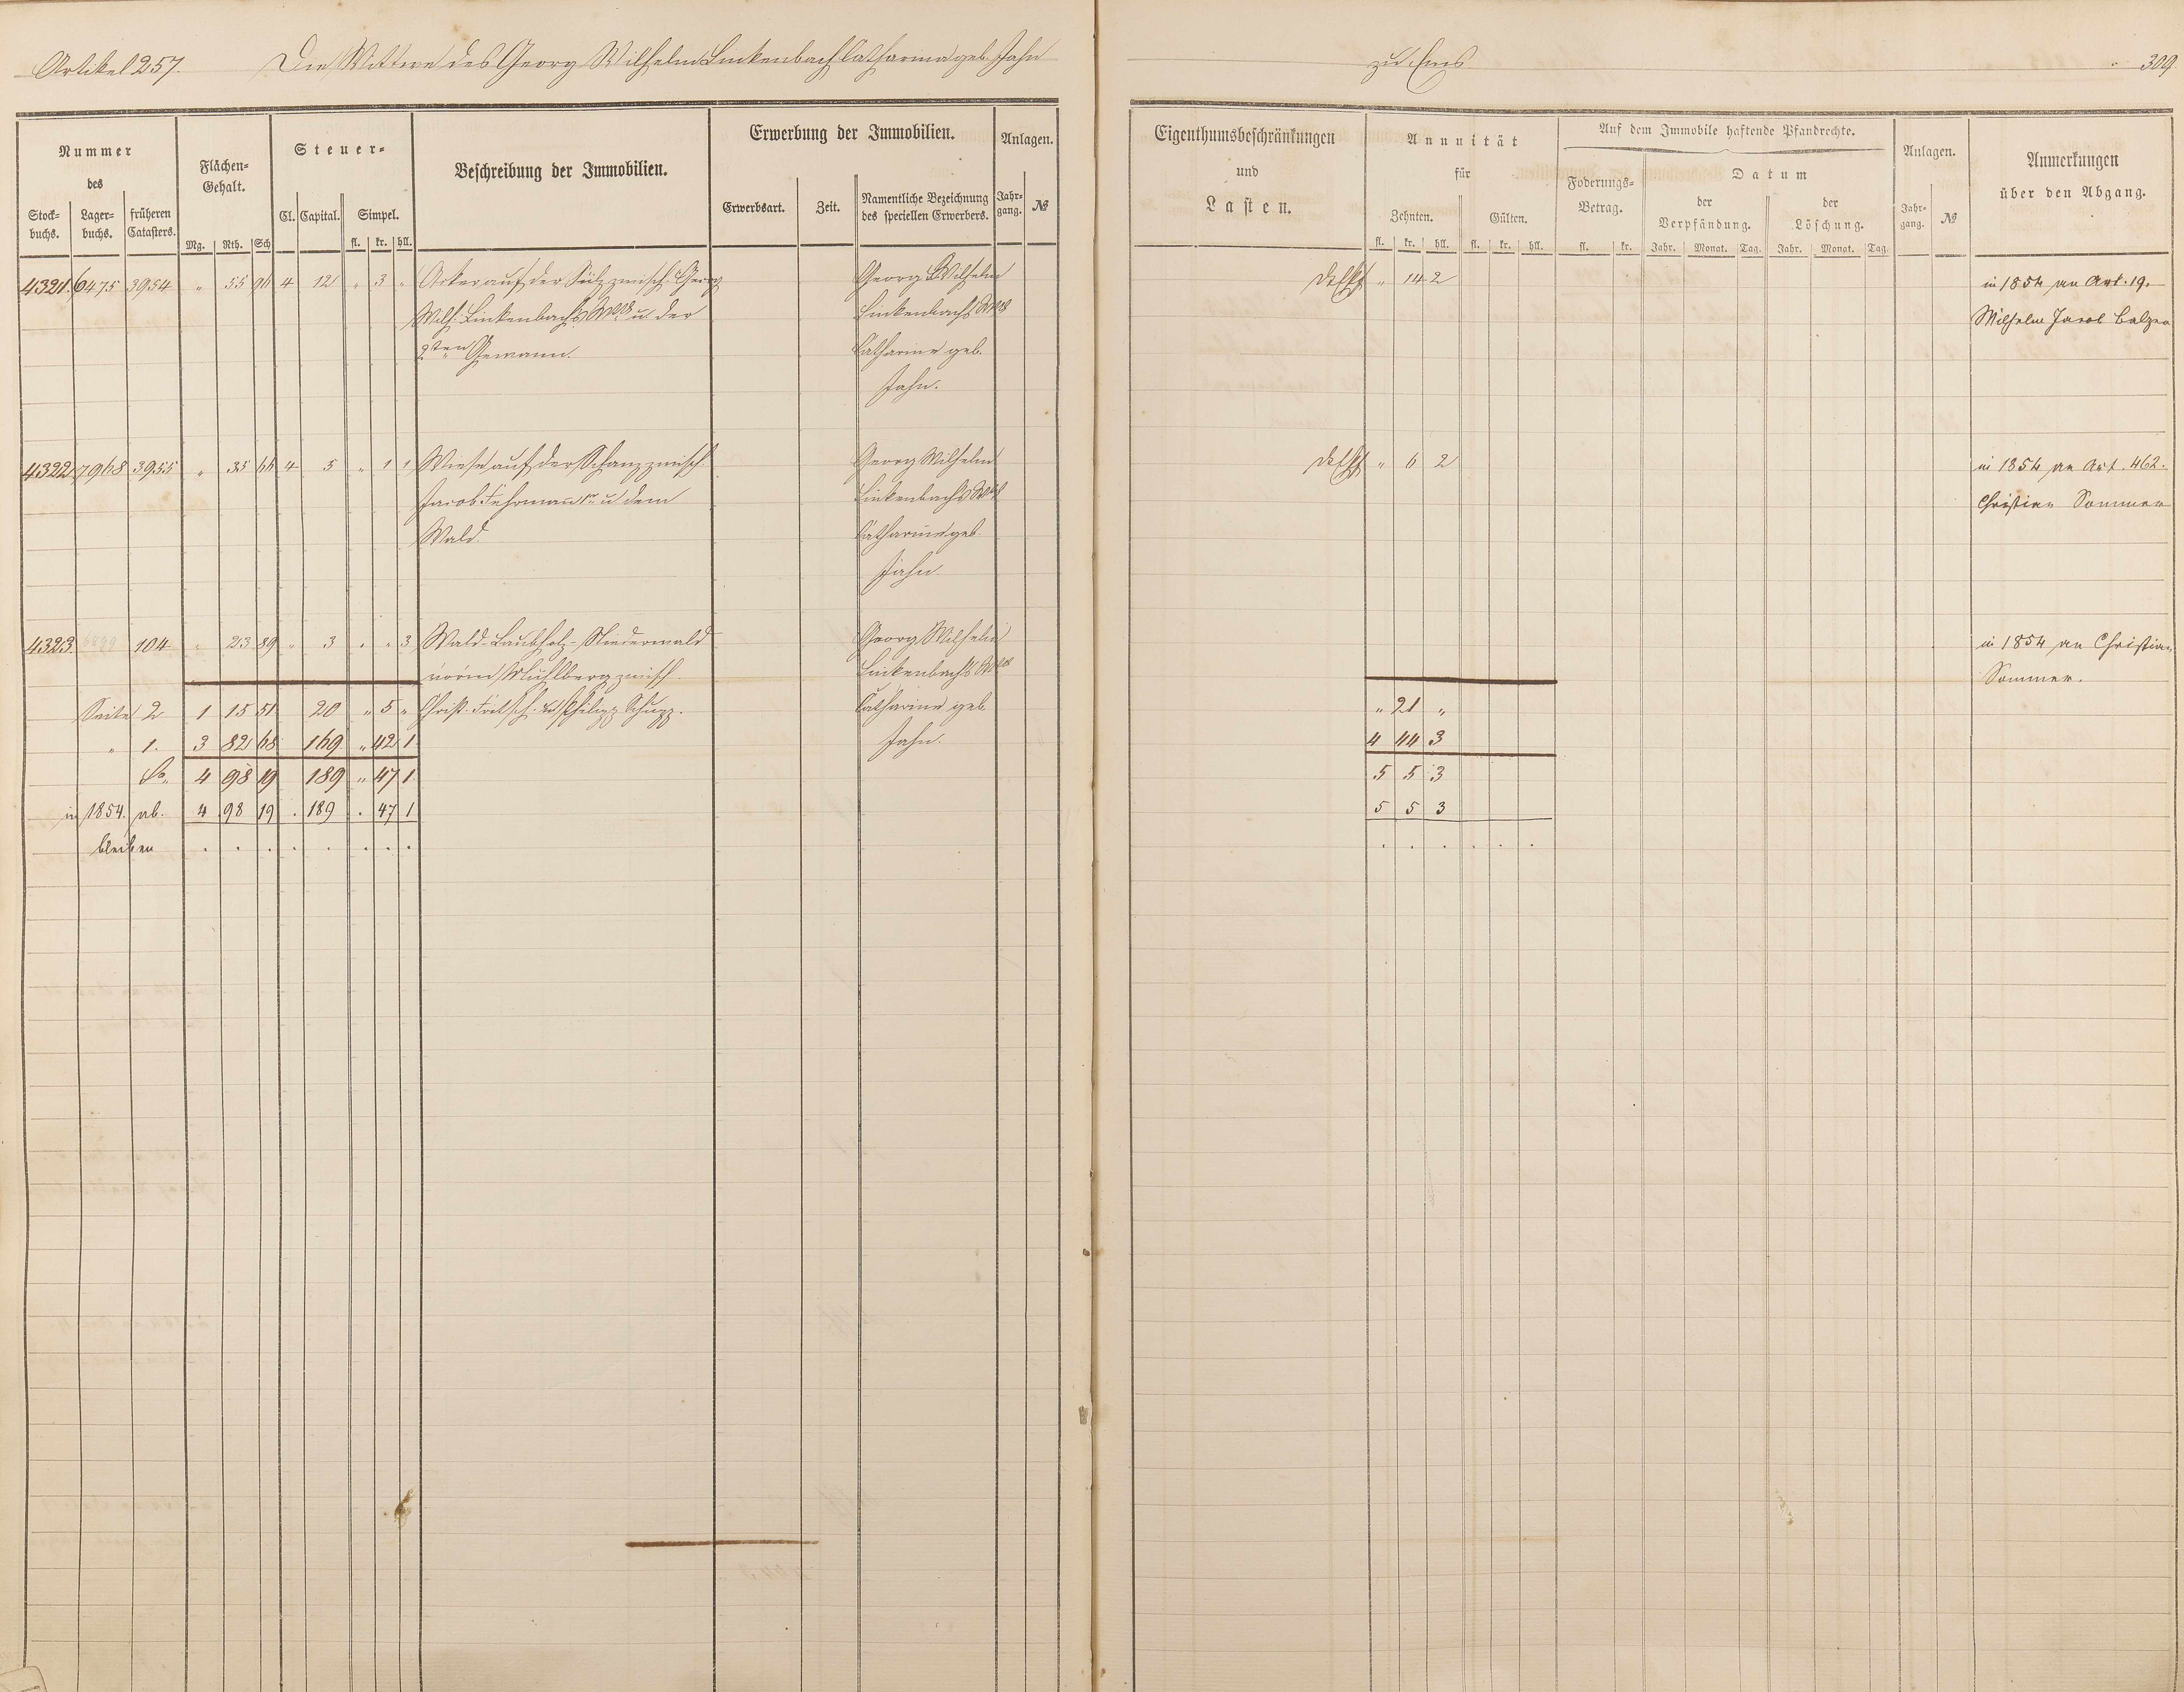 Artikel 257. Die Wittwe des Georg Wilhelm Linkenbach Catharina geb. Jahn zu Ems 309.
Nummer des
Stock-buchs. Lager-buchs. früheren Catasters.
Flächen-Gehalt.
Mg. Rth. Sch
Steuer-
Cl. Capital. Simpel.
fl. kr. hll.
Beschreibung der Immobilien.
Erwerbung der Immobilien.
Erwerbsart. Zeit. Namentliche Bezeichnung des speciellen Erwerbers.
Anlagen.
Jahr-gang. №
Eigenthumsbeschränkungen
und
Lasten.
Annuität
für
Zehnten. Gülten.
fl. kr. hll. fl. kr. hll.
Auf dem Immobile haftende Pfandrechte.
Foderungs-Betrag.
fl. kr.
Datum
der Verpfändung. der Löschung.
Jahr. Monat. Tag. Jahr. Monat. Tag.
Anlagen.
Jahr-gang. №
Anmerkungen
über den Abgang.
4321. 6475 3954 " 55 96 4 12 " 3 " Acker auf der Sülz zwisch. Georg Georg Wilhelm " 14 2 in 1854 an Art. 19.
Wilh. Linkenbachs Wwe u. der Linkenbachs Wwe Wilhelm Jacob Balzer
2ten Gewann. Catharine geb.
Jahn.
4322. 7968 3955 " 35 66 4 5 " 1 1 Wiese auf der Schanz zwisch. Georg Wilhelm " 6 2 in 1854 an Art. 462.
Jacob u. dem Linkenbachs Wwe Christian Sommer
Wald. Catharine geb.
Jahn.
4323. 104 " 23 89 " 3 " " 3 Wald-Laubholz-Niederwald Georg Wilhelm in 1854 an Christian
vorm Mühlberg zwisch. Linkenbachs Wwe Sommer.
Seite 2 1 15 51 20 " 5 " Christ. Philipp Schupp. Catharine geb. " 21 "
" 1. 3 82 68 169 " 42 1 Jahn. 4 44 3
4 98 19 189 " 47 1 5 5 3
in 1854. ab. 4 98 19 . 189 . 47 1 5 5 3
bleiben . . . . . . . . . . . . . .